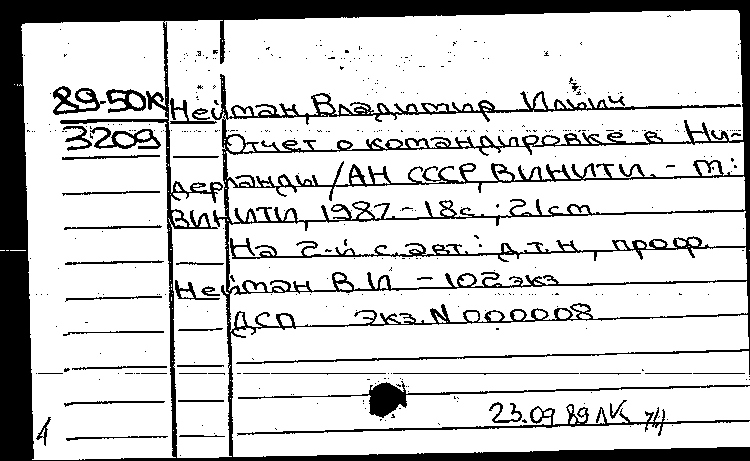 89-50К Нейман, Владимир Ильич
3209 Отчет о командировке в Ни-
дерланды / АН СССР, ВИНИТИ. - М.:
ВИНИТИ, 1987. - 18с.; 21см
На 2-й с. авт.: д.т.н., проф.
Нейман В.И. - 102экз
ДСП экз. N 000008
23.09 89 ЛК
1